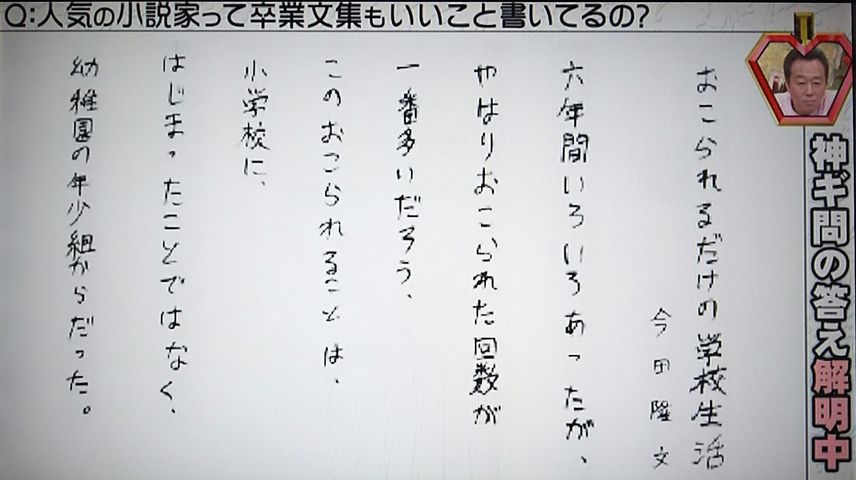 Q:人気の小説家って卒業文集もいいこと書いてるの?
神ギ問の答え解明中
おこられるだけの学校生活
今田隆文
六年間いろいろあったが、
やはりおこられた回数が
一番多いだろう、
このおこられることは、
小学校に、
はじまったことではなく、
幼稚園の年少組からだった。